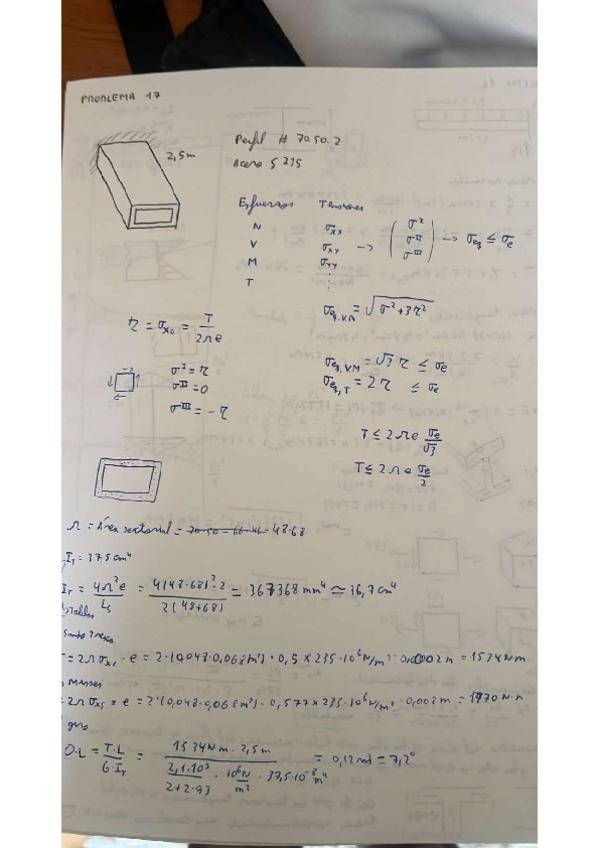 PROBLEMA 17
2,5m
Perfil # 70.50.2
Acero S 235
Esfuerzos Tensiones
N σxx
V σxy → ( σᴵ σᴵᴵ σᴵᴵᴵ ) → σeq ≤ σe
M σyy
T ⋮
σeq,VM = √σ²+3τ²
τ = σxs = T / 2Ωe
σᴵ = τ
σᴵᴵ = 0
σᴵᴵᴵ = -τ
σeq,VM = √3 τ ≤ σe
σeq,T = 2τ ≤ σe
T ≤ 2Ωe σe/√3
T ≤ 2Ωe σe/2
Ω = Área sectorial = 48·68
IT = 37,5 cm⁴
IT = 4Ω²e / Ls = 4(48·68)²·2 / 2(48+68) = 367368 mm⁴ ≃ 36,7 cm⁴
Tablas
= 2Ωσxs · e = 2·(0,048·0,068m²) · 0,5 × 235·10⁶N/m² · 0,002m = 1534Nm
= 2Ωσxs · e = 2·(0,048·0,068m²) · 0,577×235·10⁶N/m² · 0,002m = 1770N·m
θ·L = T·L / G·IT = 1534Nm · 2,5m / (2,1·10⁵ / 2+2·0,3 · 10⁶N/m² · 37,5·10⁻⁸m⁴) = 0,12rad = 7,2°